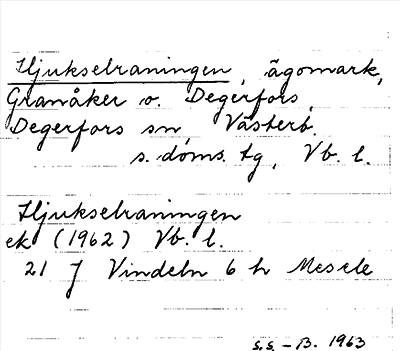 Hjukselraningen, ägomark,
Granåker o. Degerfors,
Degerfors sn, Västerb.
s. doms. tg, Vb. l.
Hjukselraningen
ek (1962) Vb. l.
21 J Vindeln 6 h Mesele
S.S. - B. 1963